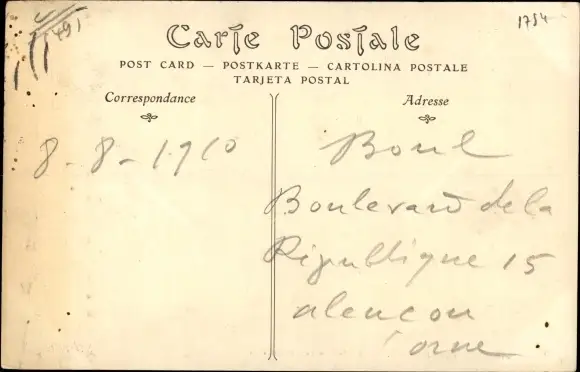 1491
1754
Carte Postale
POST CARD — POSTKARTE — CARTOLINA POSTALE
TARJETA POSTAL
Correspondance
Adresse
8-8-1910
Boul
Boulevard de la
République 15
alencon
orne